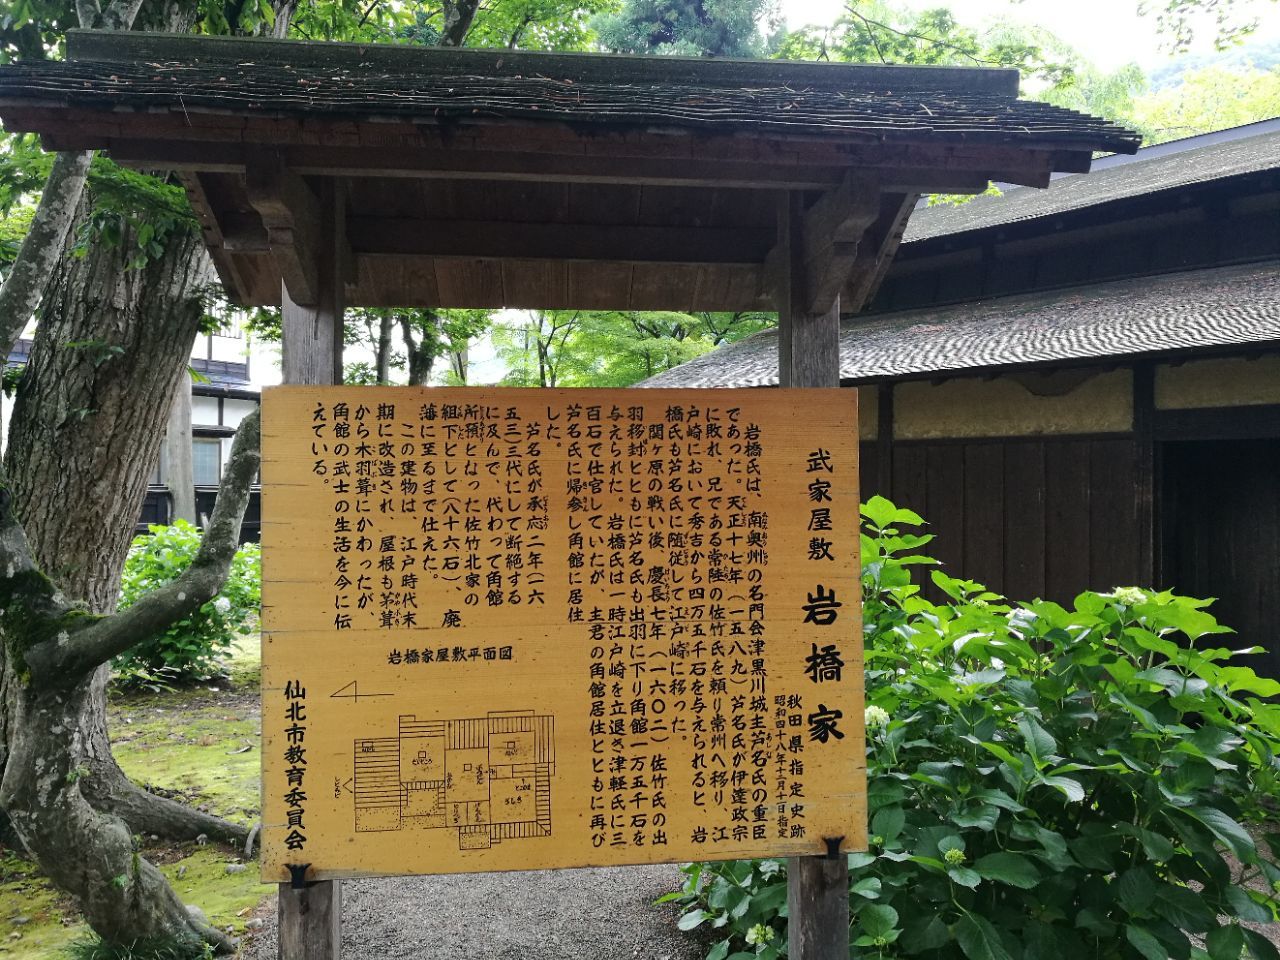 武家屋敷 岩橋家
秋田県指定史跡
昭和四十八年十二月十一日指定
岩橋氏は、南奥州の名門会津黒川城主芦名氏の重臣
であった。天正十七年(一五八九)芦名氏が伊達政宗
に敗れ、兄である常陸の佐竹氏を頼り常州へ移り、江
戸崎において秀吉から四万五千石を与えられると、岩
橋氏も芦名氏に随従して江戸崎に移った。
関ヶ原の戦い後、慶長七年(一六〇二)佐竹氏の出
羽移封とともに芦名氏も出羽に下り角館一万五千石を
与えられた。岩橋氏は一時江戸崎を立退き津軽氏に三
百石で仕官していたが、主君の角館居住とともに再び
芦名氏に帰参し角館に居住
した。
芦名氏が承応二年(一六
五三)三代にして断絶する
に及んで、代わって角館
所預となった佐竹北家の
組下として(八十六石)、廃
藩に至るまで仕えた。
この建物は、江戸時代末
期に改造され、屋根も茅葺
から木羽葺にかわったが、
角館の武士の生活を今に伝
えている。
岩橋家屋敷平面図
仙北市教育委員会